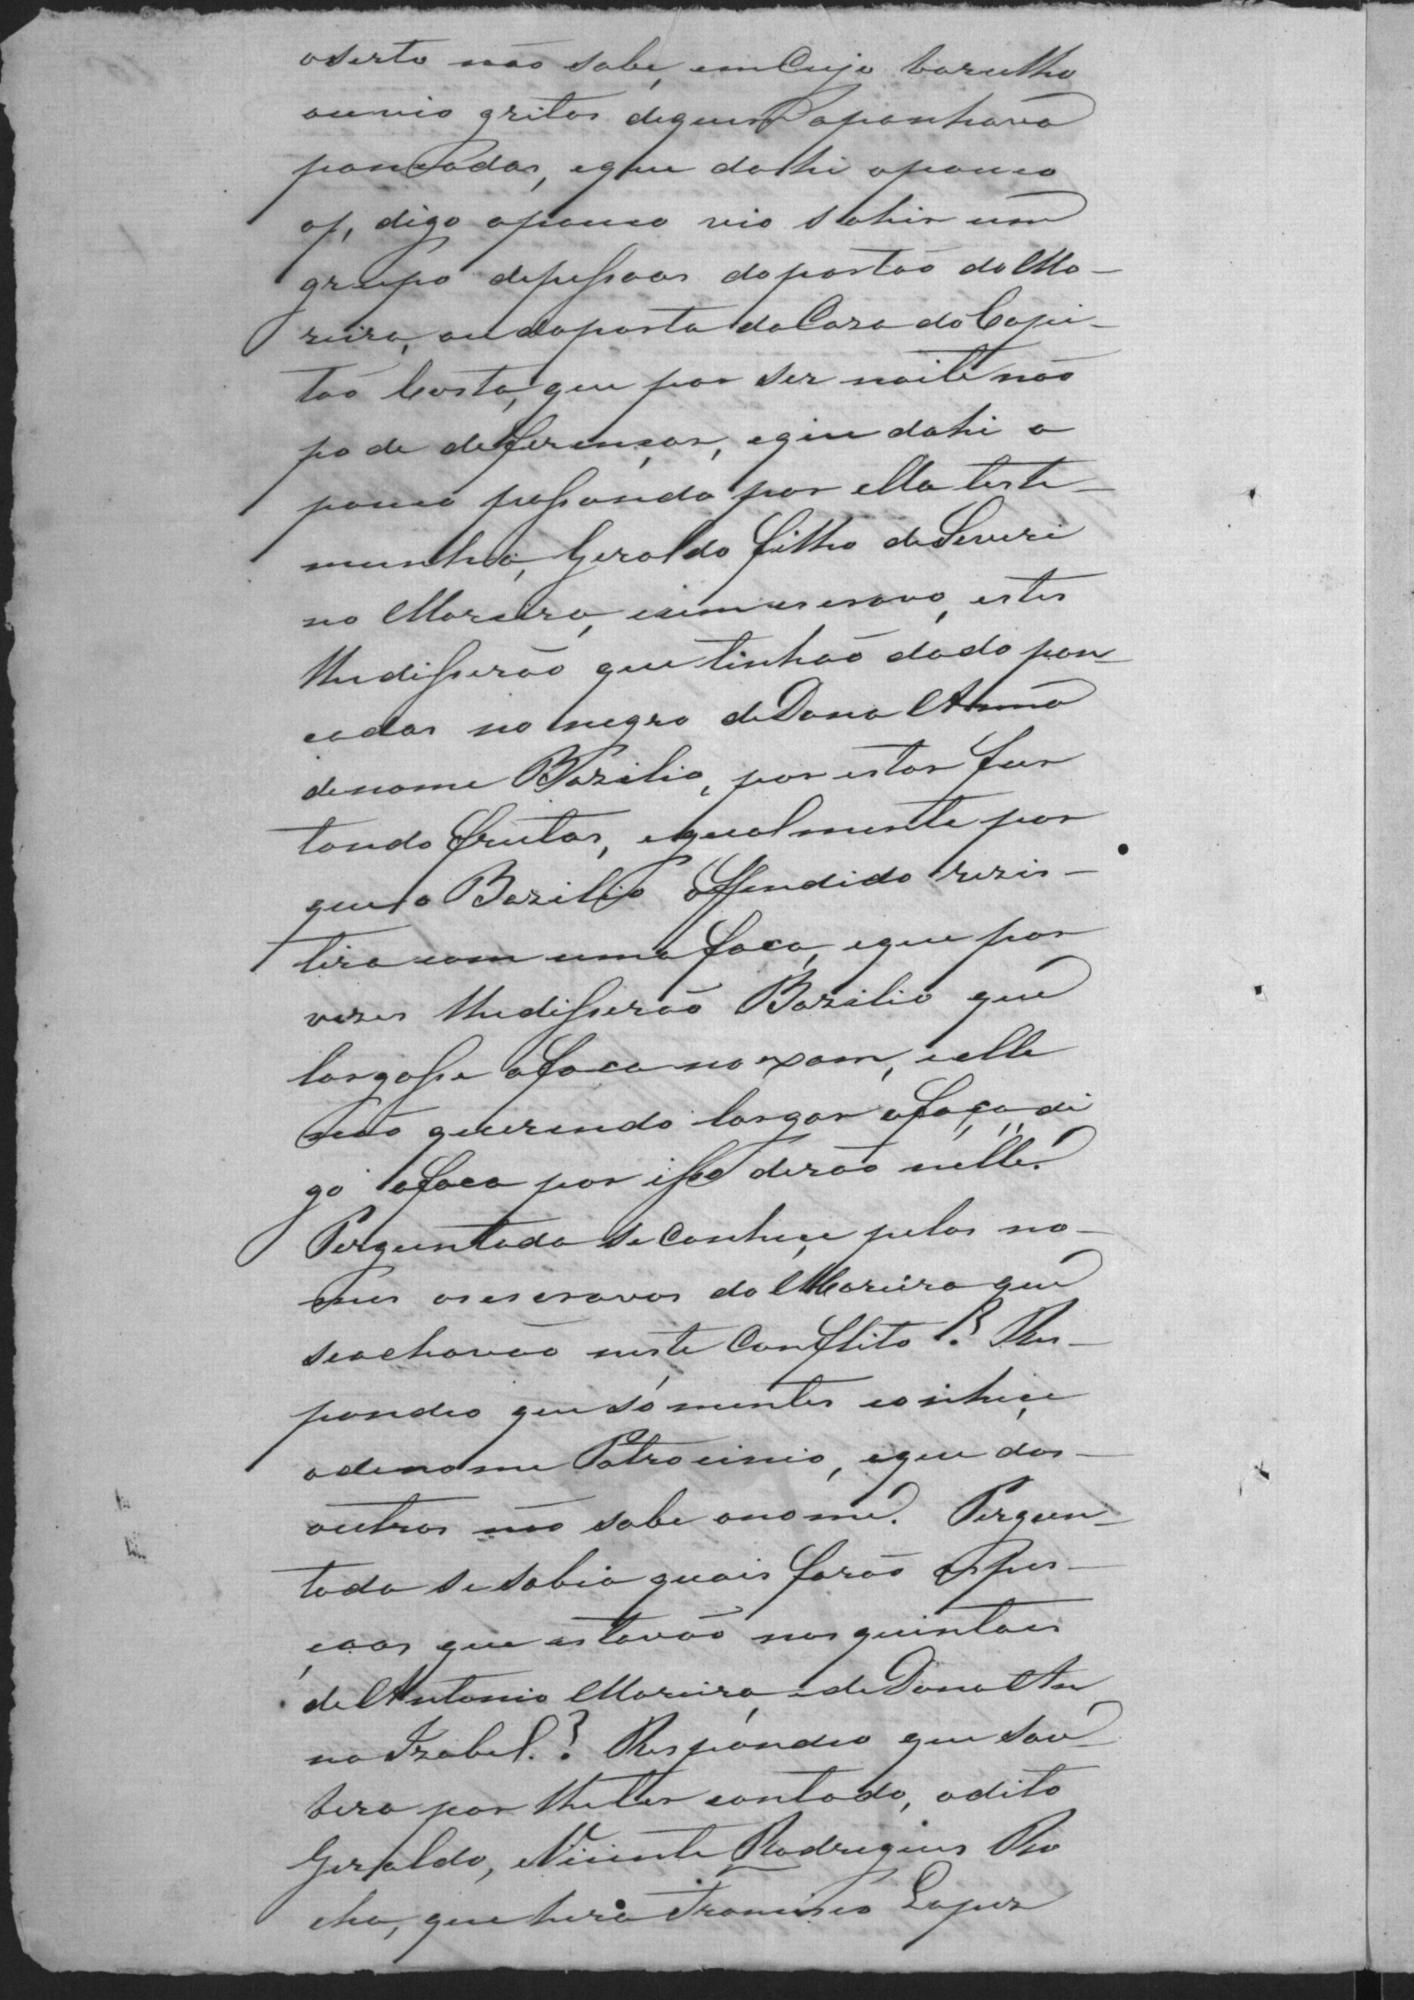 aserto não sabe, em Cujo barulho
ouvio gritos de quem apanhava
pancadas, e que dahi apouco
ap, digo apouco vio sahir um
grupo de pessoas do portão do Mo-
reira, ou da porta da Caza do Capi-
tão Costa, que por ser noite não
pode deferençar, e que dahi a
pouco passando por ella teste-
munha, Geraldo filho de Severi
no Moreira, e um escravo, estes
lhe disserão que tinhão dado pan-
cadas no negro de Dona Anna
de nome Bazilio, por estar fur
tando frutas, e igualmente por
que o Bazilio offendido rezis-
tira com uma faca, e que por
vezes lhe disserão Bazilio que
largasse a faca no xam, e elle
não querendo largar a faça, di
go a faca por isso derão nelle.
Perguntado se conheçe pelos no-
mes os escravos do Moreira que
se achavão neste Conflito? Res-
pondeo que sómentes conheçe
o de nome Patrocinio, e que dos
outros não sabe o nome. Pergun-
tado se sabia quais farão as pes-
çoas que estavão nos quintaes
de Antonio Moreira, e de Dona An
na Izabel.? Respondeo que sou-
bera por lhe ter contado, o dito
Geraldo, e Vicente Rodrigues Ro
cha, que hera Francisco Lopes